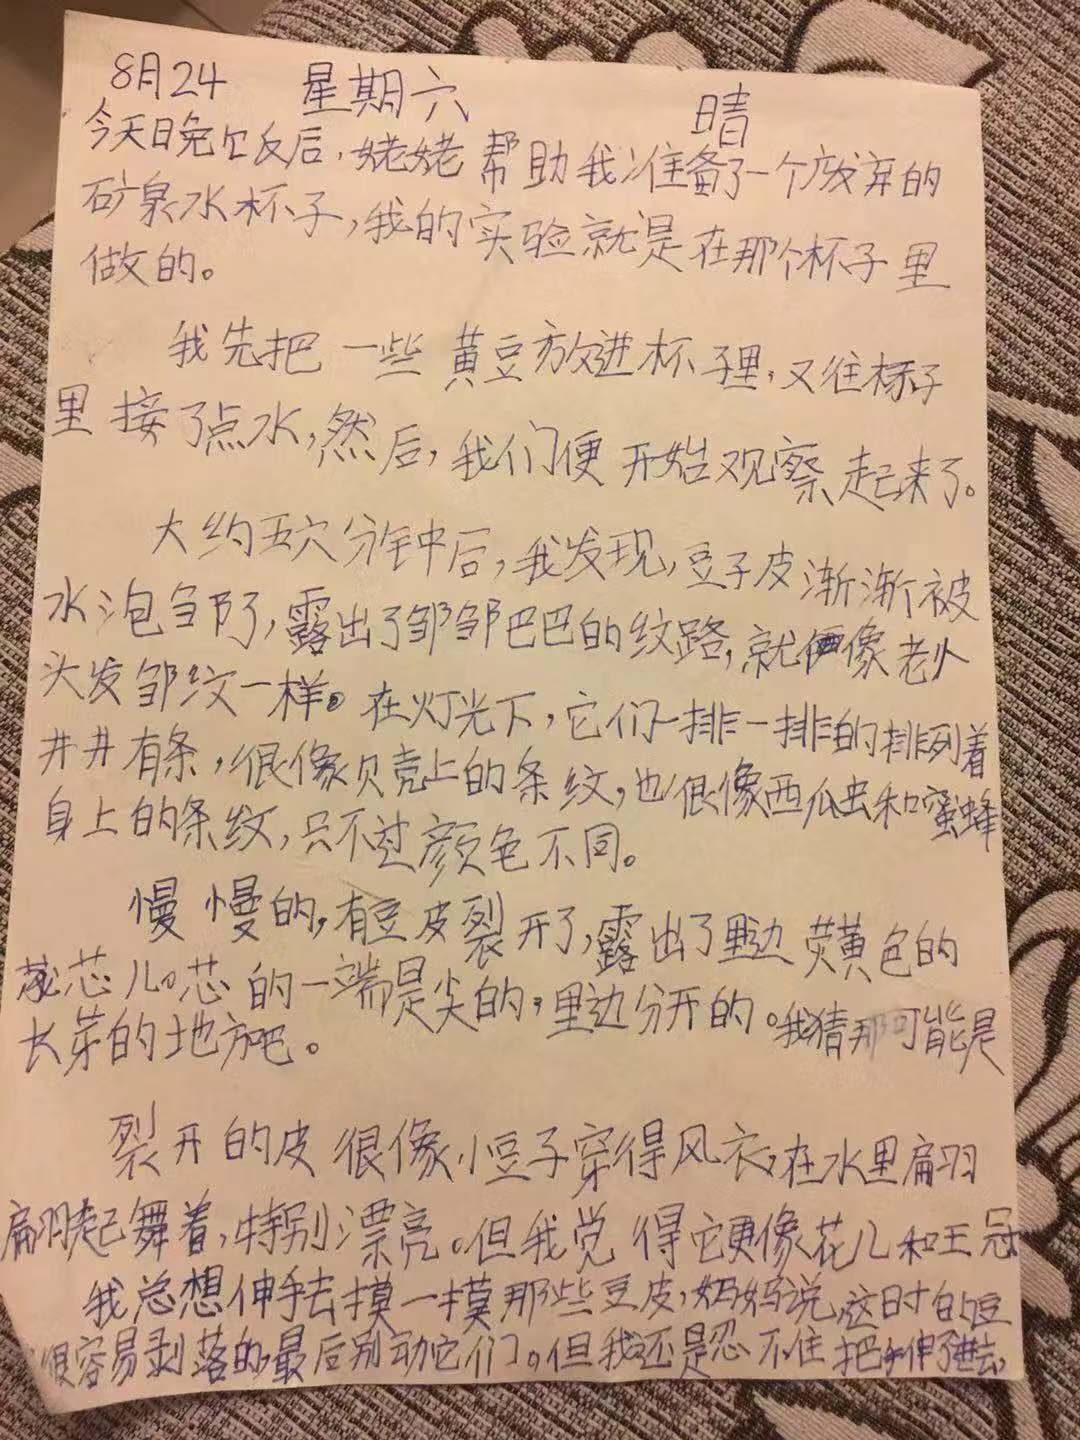 8月24 星期六 晴
今天晚饭后,姥姥帮助我准备了一个废弃的
矿泉水杯子,我的实验就是在那个杯子里
做的。
我先把一些黄豆放进杯子里,又往杯子
里接了点水,然后,我们便开始观察起来了。
大约五六分钟后,我发现,豆子皮渐渐被
水泡邹了,露出了邹邹巴巴的纹路,就像老人
头发邹纹一样。在灯光下,它们一排一排的排列着
井井有条,很像贝壳上的条纹,也很像西瓜虫和蜜蜂
身上的条纹,只不过颜色不同。
慢慢的,有豆皮裂开了,露出了里边荧黄色的
芯儿。芯的一端是尖的,里边分开的。我猜那可能是
长芽的地方吧。
裂开的皮很像小豆子穿得风衣,在水里扁羽
扁羽起舞着,特别漂亮。但我觉得它更像花儿和王冠
我总想伸手去摸一摸那些豆皮,妈妈说,这时的豆
很容易剥落的,最后别动它们。但我还是忍不住把手伸了进去,